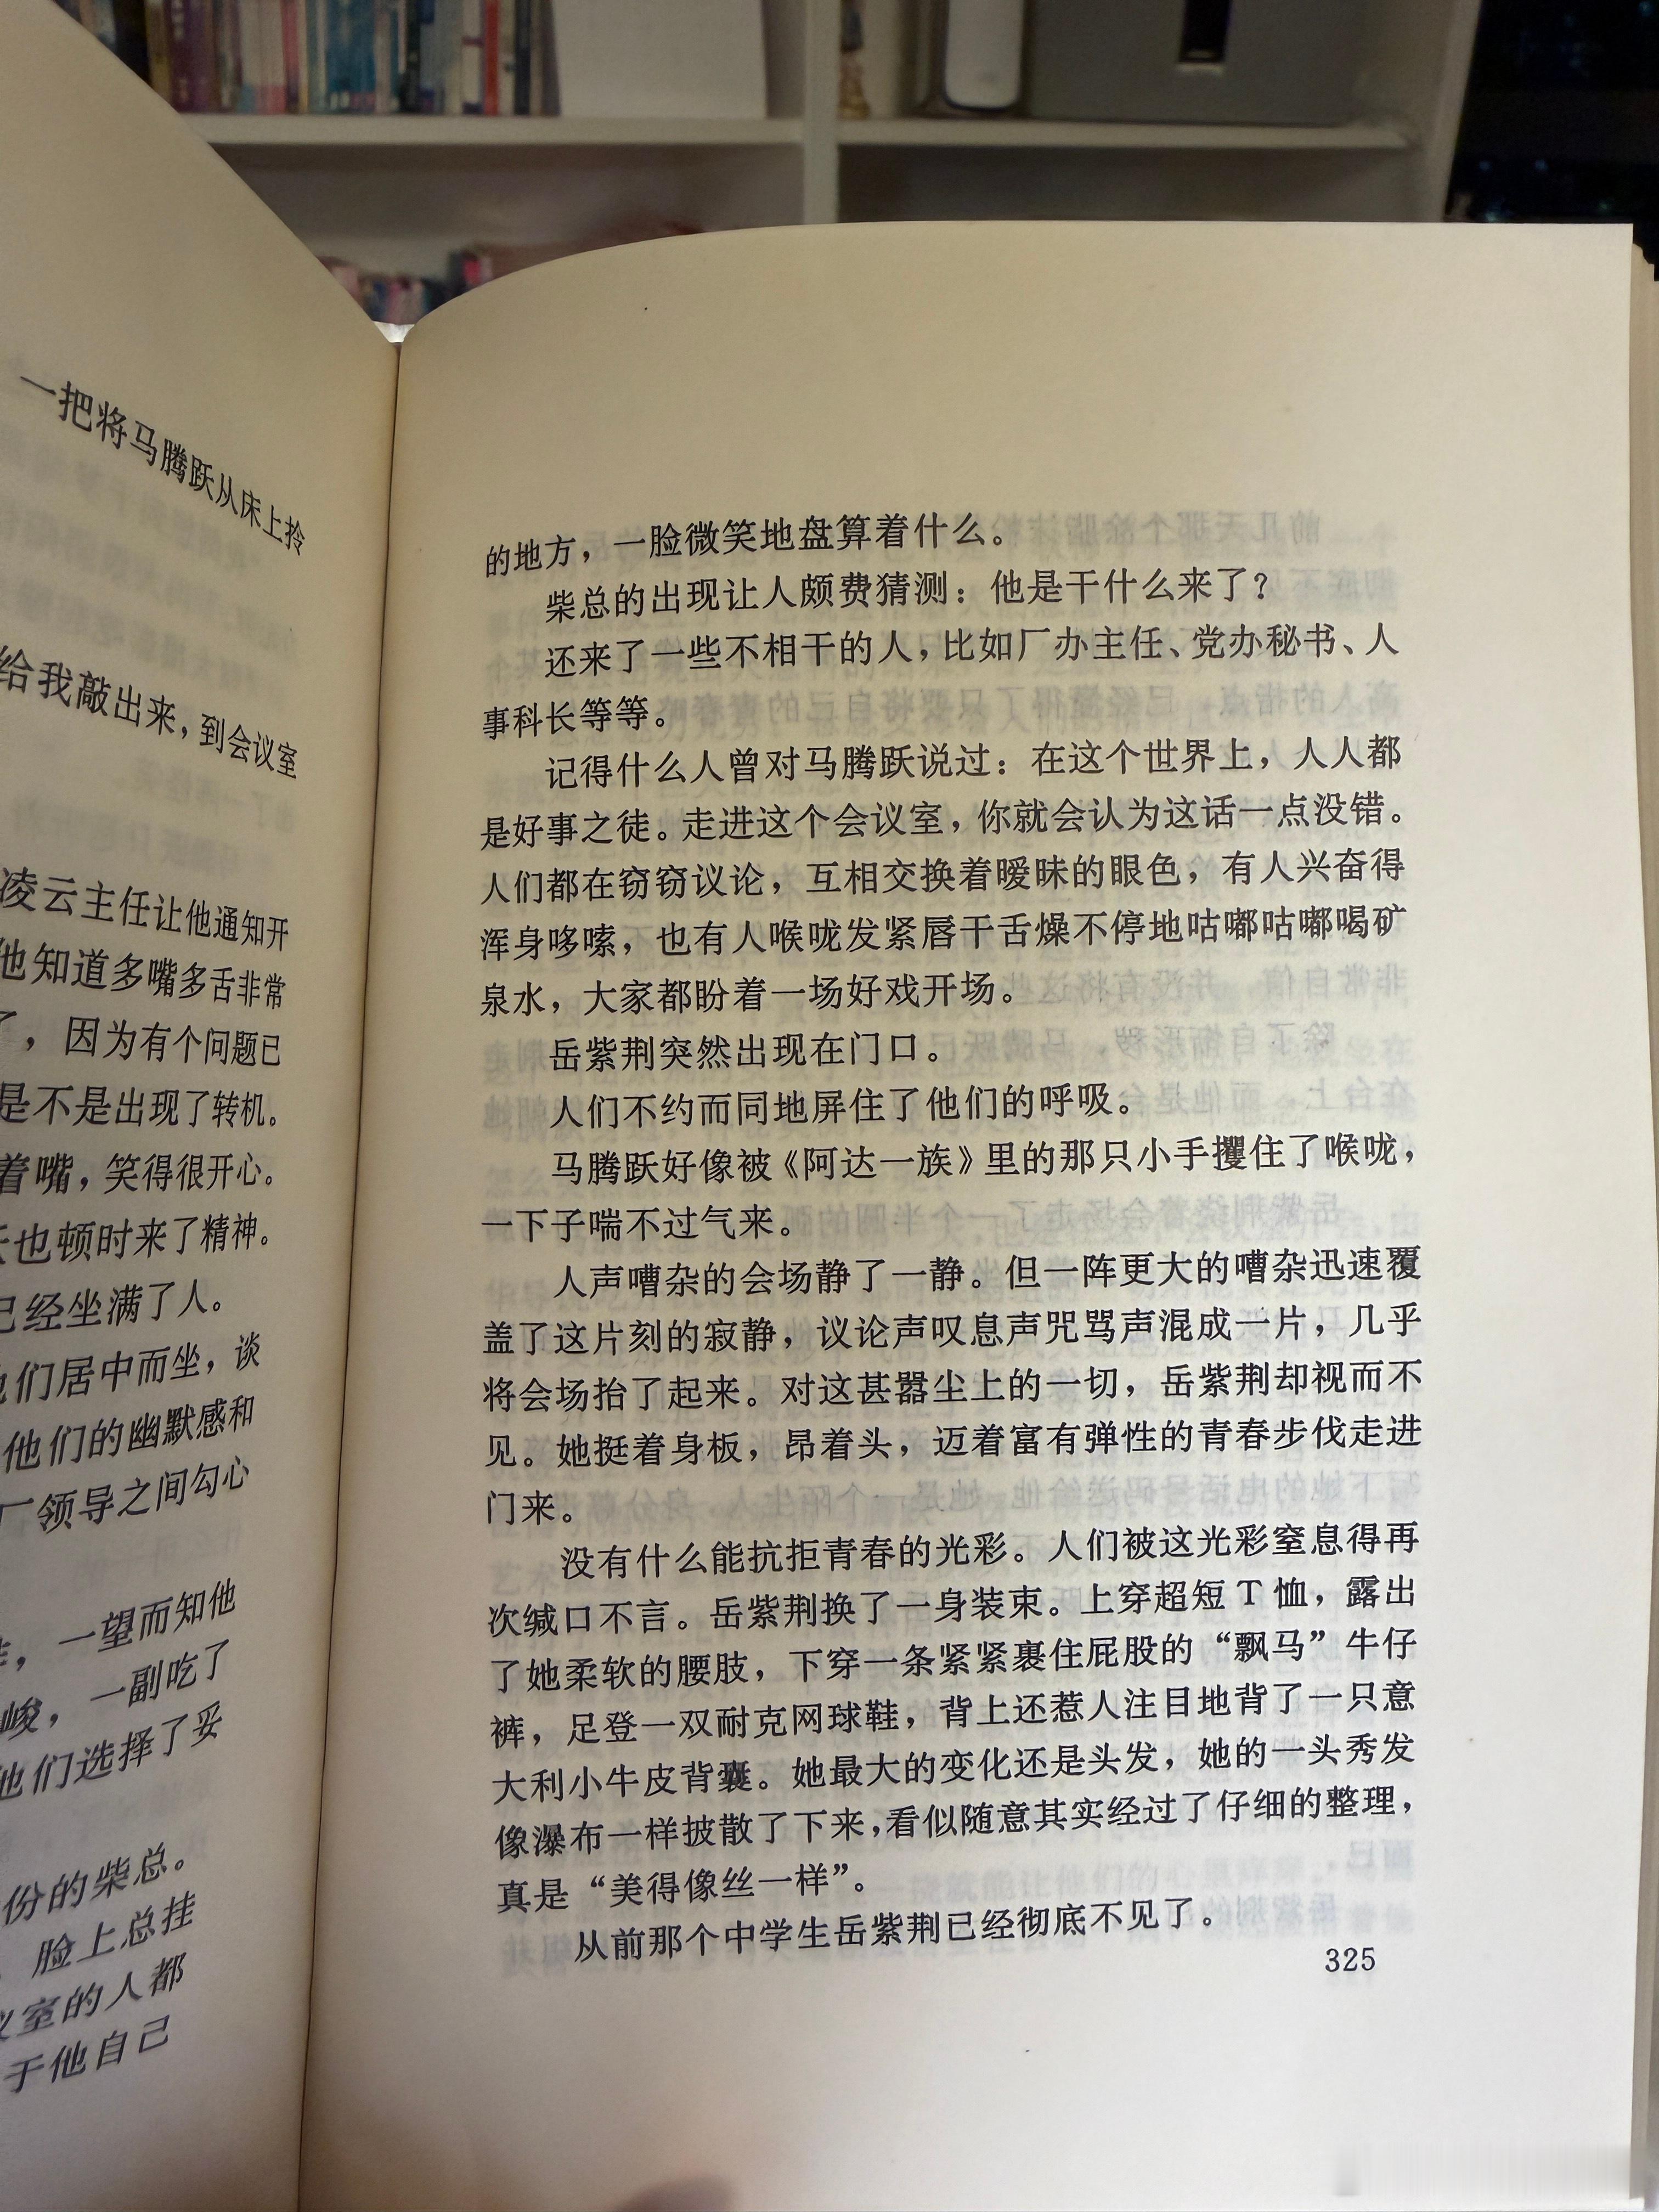 一把将马腾跃从床上拎
给我敲出来，到会议室
凌云主任让他通知开
他知道多嘴多舌非常
了，因为有个问题已
是不是出现了转机。
着嘴，笑得很开心。
也顿时来了精神。
已经坐满了人。
他们居中而坐，谈
他们的幽默感和
厂领导之间勾心
，一望而知他
峻，一副吃了
他们选择了妥
份的柴总。
脸上总挂
议室的人都
于他自己
的地方，一脸微笑地盘算着什么。
柴总的出现让人颇费猜测：他是干什么来了？
还来了一些不相干的人，比如厂办主任、党办秘书、人
事科长等等。
记得什么人曾对马腾跃说过：在这个世界上，人人都
是好事之徒。走进这个会议室，你就会认为这话一点没错。
人们都在窃窃议论，互相交换着暧昧的眼色，有人兴奋得
浑身哆嗦，也有人喉咙发紧唇干舌燥不停地咕嘟咕嘟喝矿
泉水，大家都盼着一场好戏开场。
岳紫荆突然出现在门口。
人们不约而同地屏住了他们的呼吸。
马腾跃好像被《阿达一族》里的那只小手攫住了喉咙，
一下子喘不过气来。
人声嘈杂的会场静了一静。但一阵更大的嘈杂迅速覆
盖了这片刻的寂静，议论声叹息声咒骂声混成一片，几乎
将会场抬了起来。对这甚嚣尘上的一切，岳紫荆却视而不
见。她挺着身板，昂着头，迈着富有弹性的青春步伐走进
门来。
没有什么能抗拒青春的光彩。人们被这光彩窒息得再
次缄口不言。岳紫荆换了一身装束。上穿超短T恤，露出
了她柔软的腰肢，下穿一条紧紧裹住屁股的“飘马”牛仔
裤，足登一双耐克网球鞋，背上还惹人注目地背了一只意
大利小牛皮背囊。她最大的变化还是头发，她的一头秀发
像瀑布一样披散了下来，看似随意其实经过了仔细的整理，
真是“美得像丝一样”。
从前那个中学生岳紫荆已经彻底不见了。
325